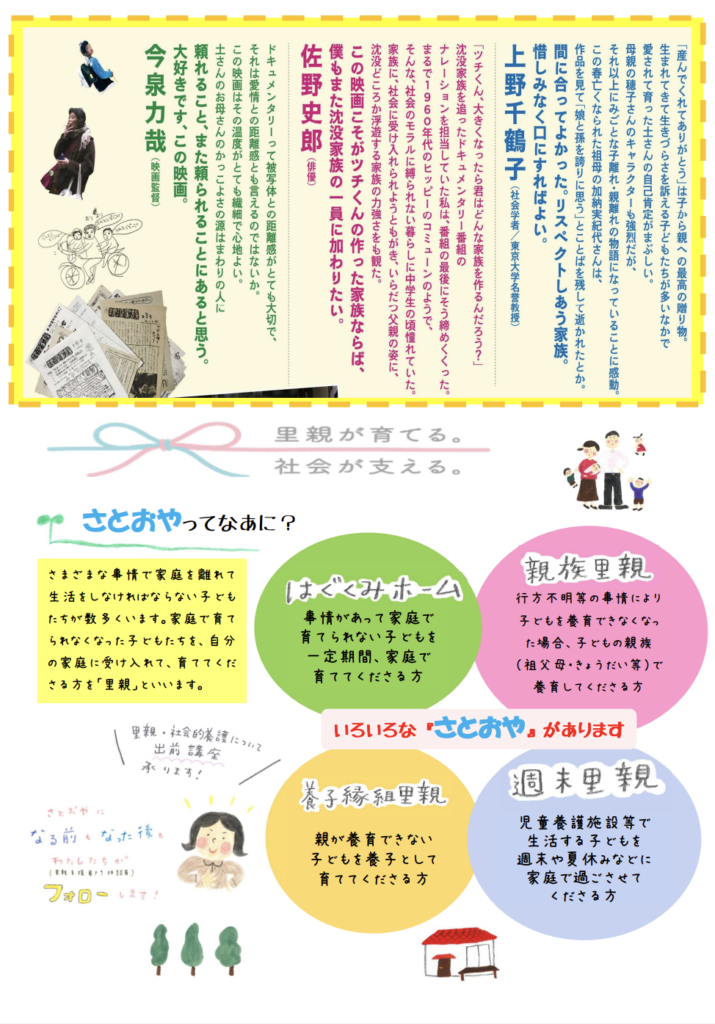 「産んでくれてありがとう」は子から親への最高の贈り物。
生まれてきて生きづらさを訴える子どもたちが多いなかで
愛されて育った土さんの自己肯定がまぶしい。
母親の穂子さんのキャラクターも強烈だが、
それ以上にみごとな子離れ・親離れの物語になっていることに感動。
この春亡くなられた祖母の加納実紀代さんは、
作品を見て「娘と孫を誇りに思う」とことばを残して逝かれたとか。
間に合ってよかった。リスペクトしあう家族。
惜しみなく口にすればよい。
上野千鶴子（社会学者／東京大学名誉教授）
「ツチくん、大きくなったら君はどんな家族を作るんだろう？」
沈没家族を追ったドキュメンタリー番組の
ナレーションを担当していた私は、番組の最後にそう締めくくった。
まるで1960年代のヒッピーのコミューンのようで、
そんな、社会のモラルに縛られない暮らしに中学生の頃憧れていた。
家族に、社会に受け入れられようともがき、いらだつ父親の姿に、
沈没どころか浮遊する家族の力強さをも観た。
この映画こそがツチくんの作った家族ならば、
僕もまた沈没家族の一員に加わりたい。
佐野史郎（俳優）
ドキュメンタリーって被写体との距離感がとても大切で、
それは愛情との距離感とも言えるのではないか。
この映画はその温度がとても繊細で心地よい。
土さんのお母さんのかっこよさの源はまわりの人に
頼れること、また頼られることにあると思う。
大好きです、この映画。
今泉力哉（映画監督）
里親が育てる。
社会が支える。
さとおやってなあに？
さまざまな事情で家庭を離れて
生活をしなければならない子ども
たちが数多くいます。家庭で育て
られなくなった子どもたちを、自分
の家庭に受け入れて、育ててくだ
さる方を「里親」といいます。
はぐくみホーム
事情があって家庭で
育てられない子どもを
一定期間、家庭で
育ててくださる方
親族里親
行方不明等の事情により
子どもを養育できなくなっ
た場合、子どもの親族
（祖父母・きょうだい等）で
養育してくださる方
いろいろな『さとおや』があります
養子縁組里親
親が養育できない
子どもを養子として
育ててくださる方
週末里親
児童養護施設等で
生活する子どもを
週末や夏休みなどに
家庭で過ごさせて
くださる方
里親・社会的養護について
出前講座
承ります！
さとおやに
なる前もなった後も
わたしたちが
フォローします！